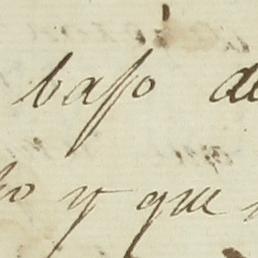 bajo de
y que